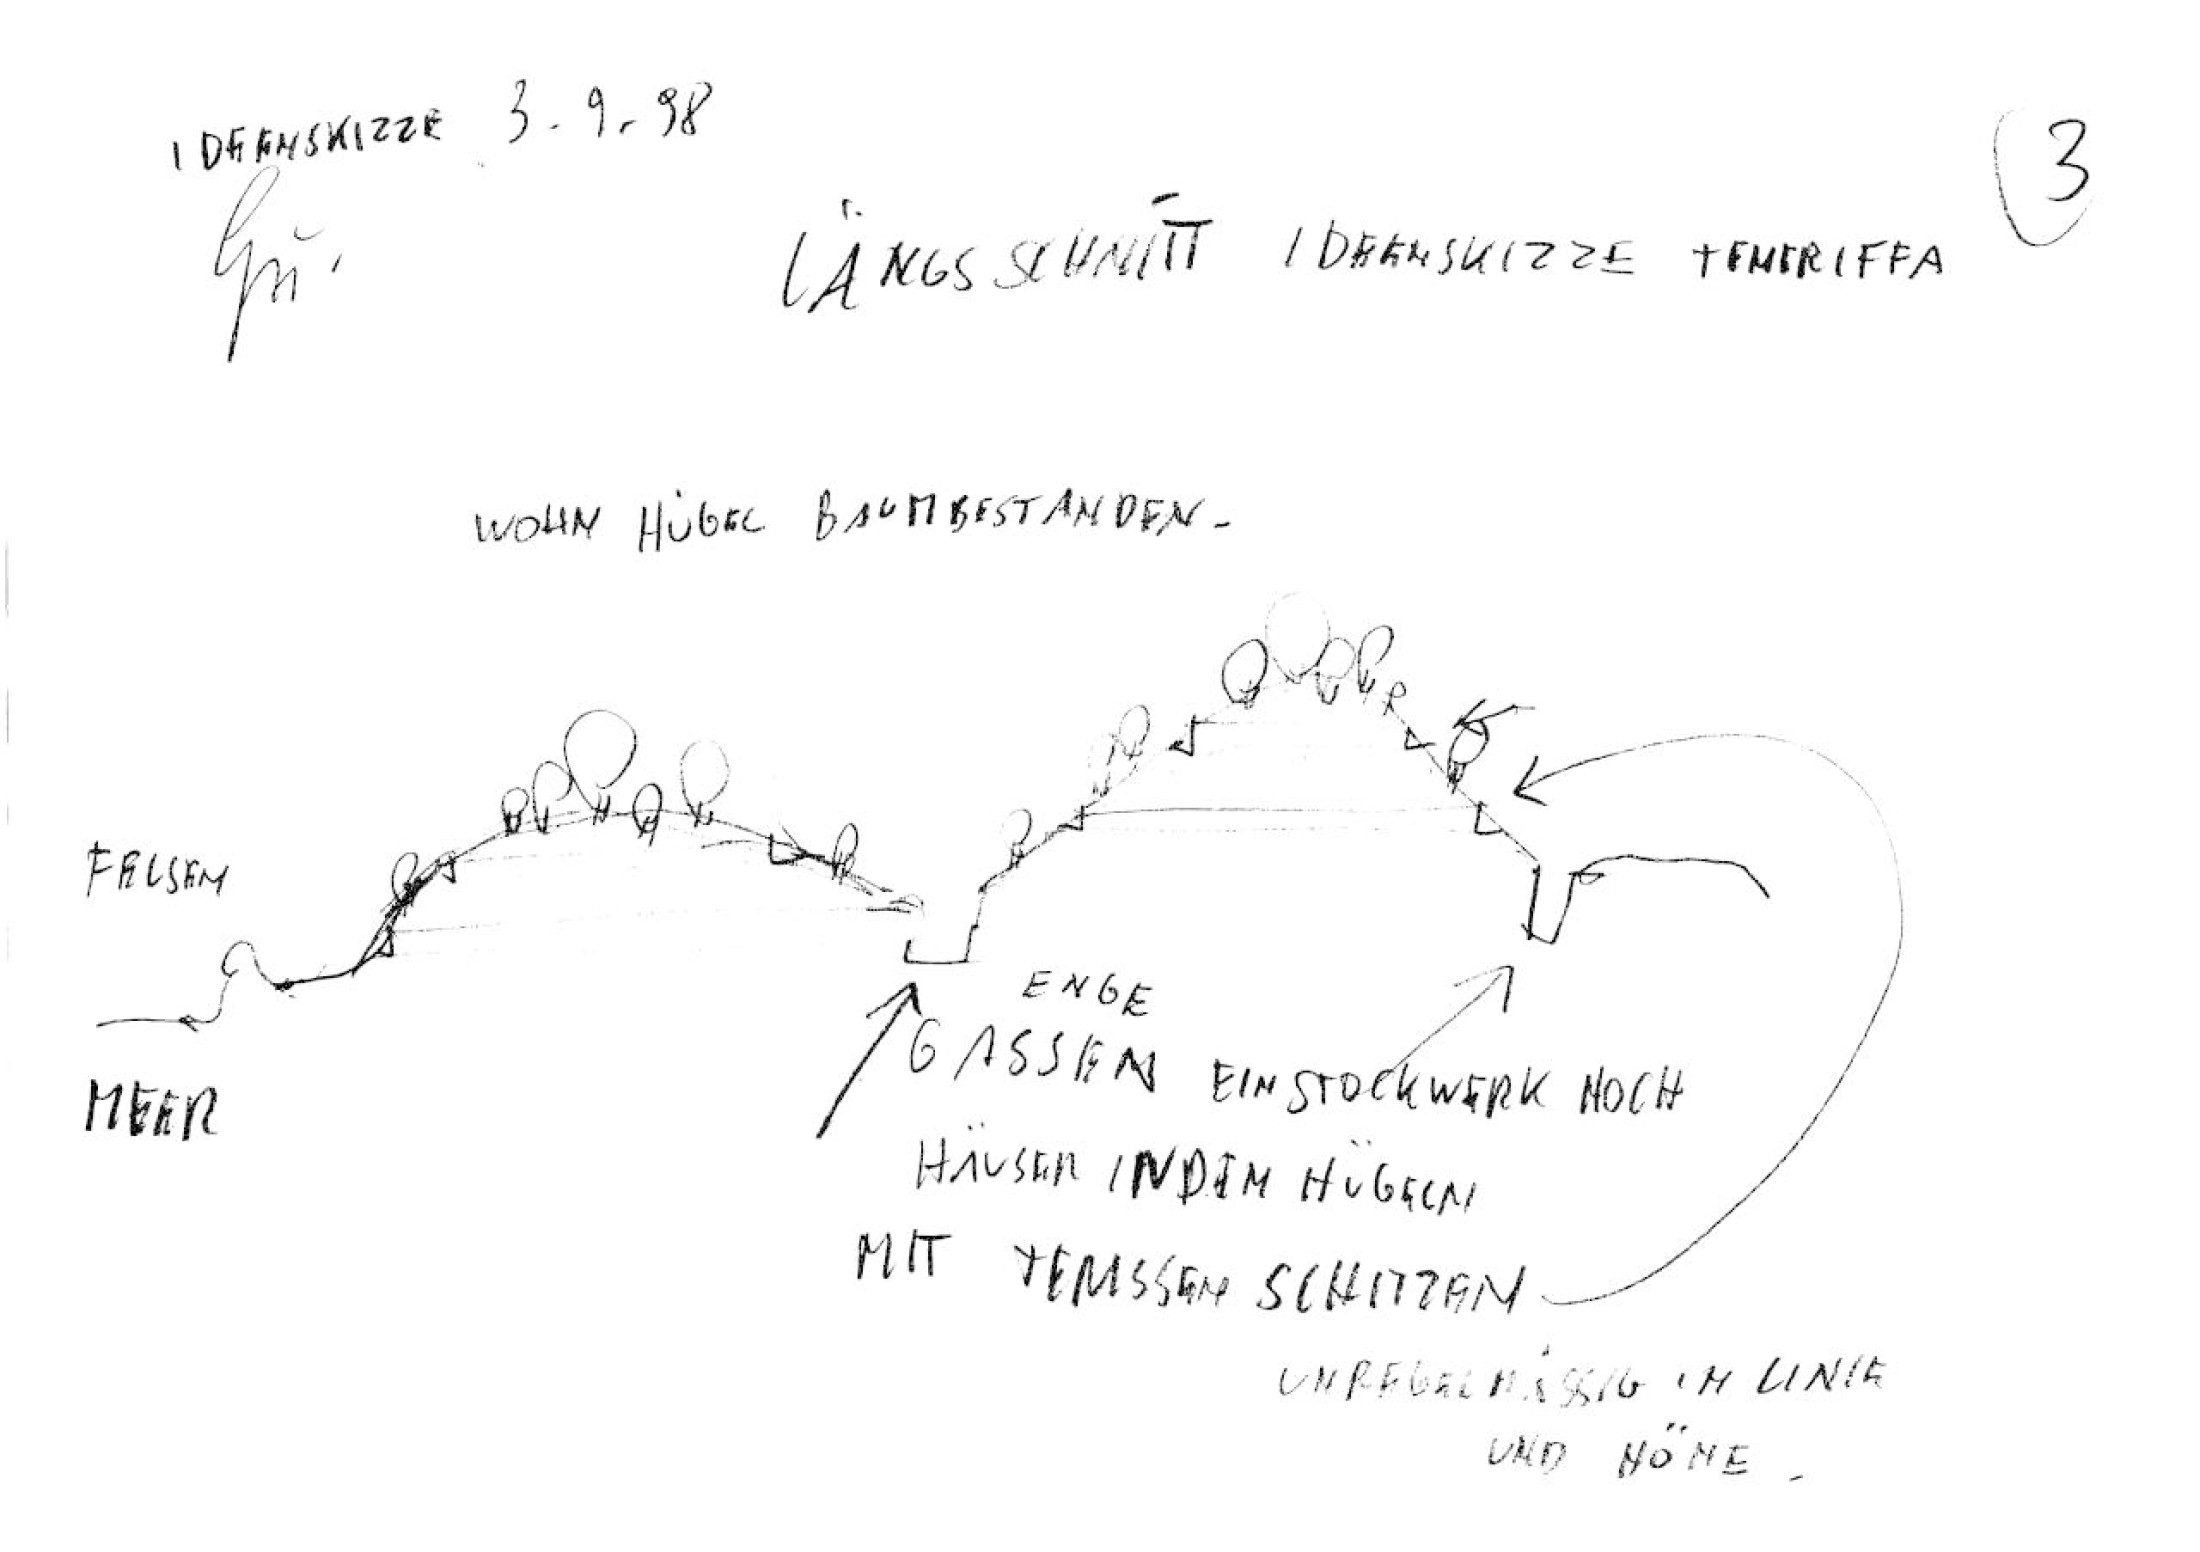 IDEENSKIZZE 3.9.98
3
LÄNGSSCHNITT IDEENSKIZZE TENERIFFA
WOHN HÜGEL BAUMBESTANDEN.
FELSEN
MEER
ENGE
GASSEN EINSTOCKWERK HOCH
HÄUSER IN DEN HÜGELN
MIT TERASSEN SCHITZEN
UNREGELMÄSSIG IN LINIE
UND HÖHE.